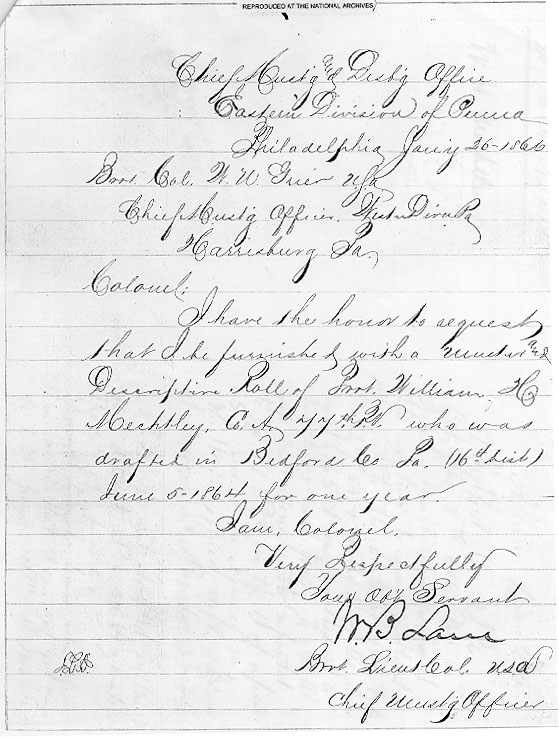 REPRODUCED AT THE NATIONAL ARCHIVES
Chief Mustg and Disbg Office
Eastern Division of Penna
Philadelphia Jany 26-1866
Bvt. Col. W. W. Grier USA
Chief Mustg Officer, Westn Divn Pa
Harrisburg Pa.
Colonel:
I have the honor to request
that I be furnished with a Muster and
Descriptive Roll of Prvt. William H
Mechtley, Co. A, 77th PV. who was
drafted in Bedford Co Pa. (16th dist)
June 5-1864 for one year.
I am, Colonel,
Very Respectfully
Your Obt Servant
W. B. Lane
Bvt. Lieut Col. USA
Chief Mustg Officer